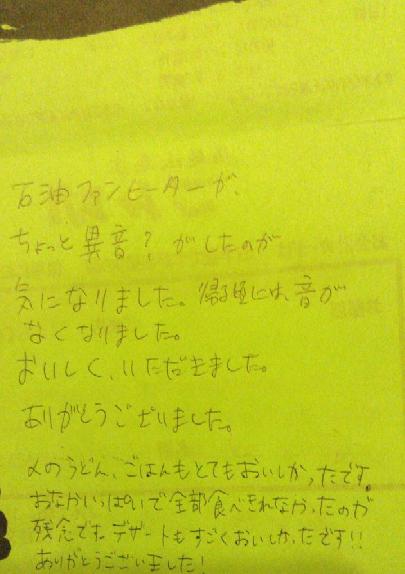 石油ファンヒーターが、
ちょっと異音?がしたのが
気になりました。帰る頃には、音が
なくなりました。
おいしく、いただきました。
ありがとうございました。
〆のうどん、ごはんもとてもおいしかったです。
おなかいっぱいで全部食べきれなかったのが
残念です。デザートもすごくおいしかったです!!
ありがとうございました!